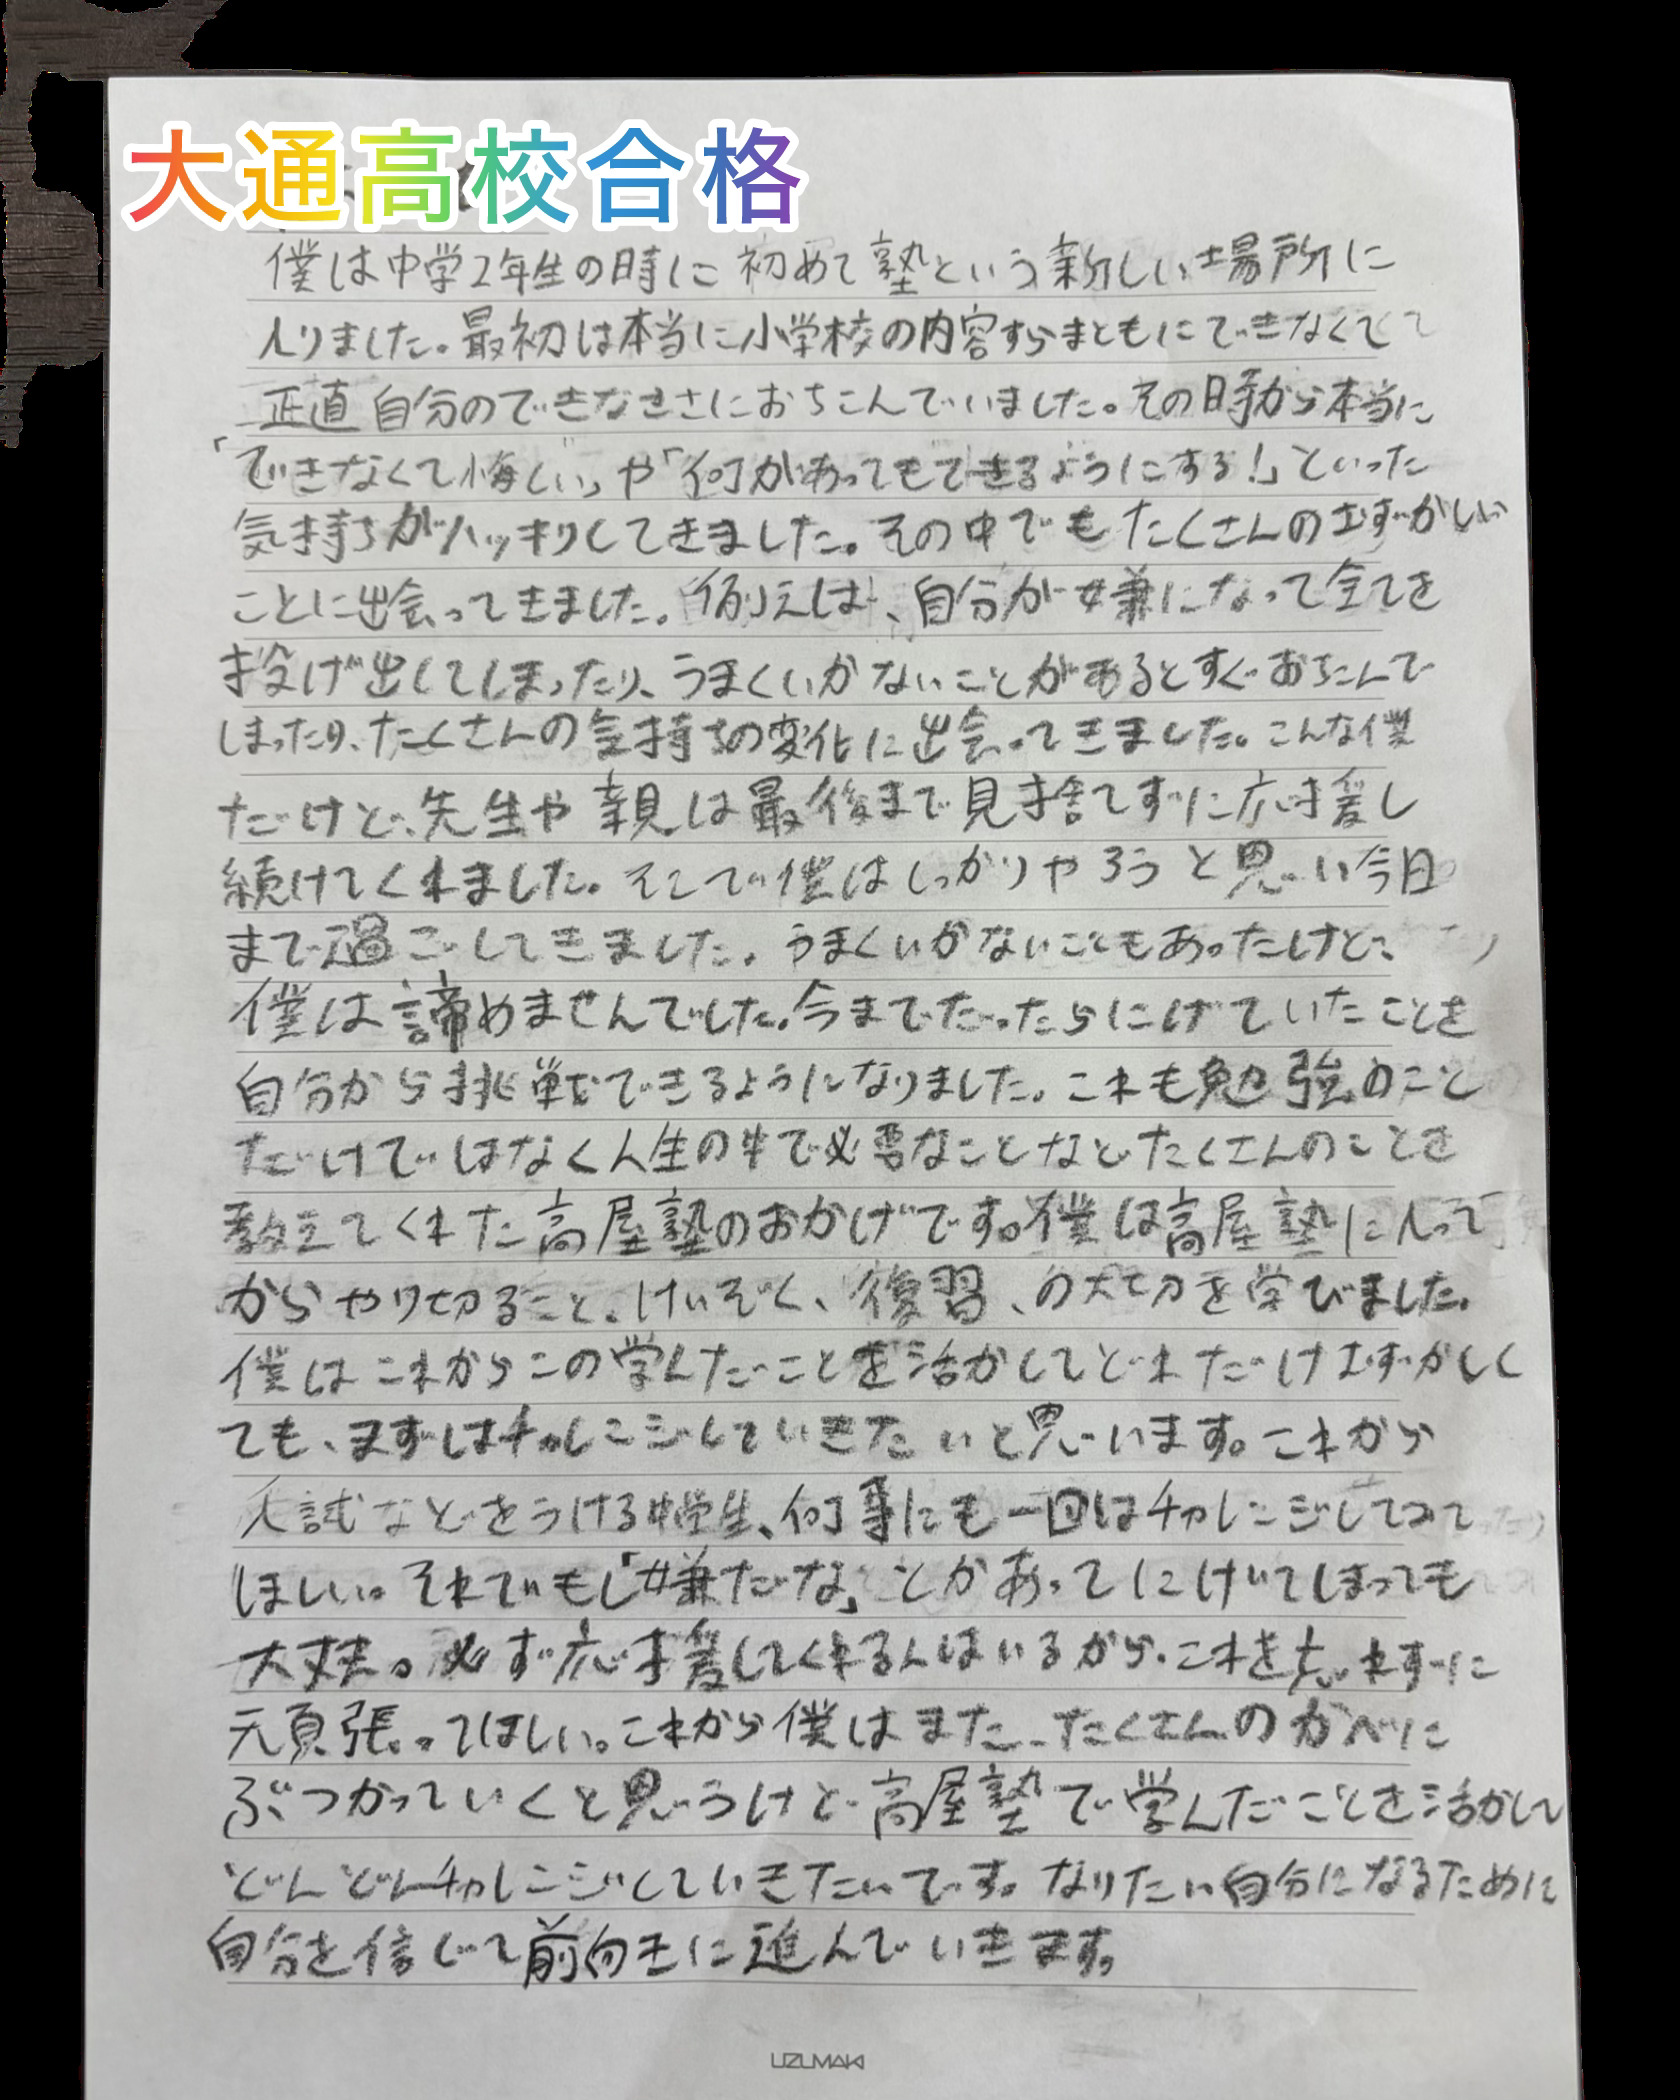 大通高校合格
僕は中学2年生の時に初めて塾という新しい場所に
入りました。最初は本当に小学校の内容すらまともにできなくて
正直自分のできなささにおちこんでいました。その時から本当に
「できなくて悔しい」や「何があってもできるようにする!」といった
気持ちがハッキリしてきました。その中でもたくさんのむずかしい
ことに出会ってきました。例えば、自分が嫌になって全てを
投げ出してしまったり、うまくいかないことがあるとすぐおちこんで
しまったり、たくさんの気持ちの変化に出会ってきました。こんな僕
だけど、先生や親は最後まで見捨てずに応援し
続けてくれました。そこで僕はしっかりやろうと思い今日
まで過ごしてきました。うまくいかないこともあったけど、
僕は諦めませんでした。今までだったらにげていたことを
自分から挑戦できるようになりました。これも勉強のこと
だけではなく人生の中で必要なことなどたくさんのことを
教えてくれた高屋塾のおかげです。僕は高屋塾に入って
からやり切ること、けいぞく、復習、の大切を学びました。
僕はこれからこの学んだことを活かしてどれだけむずかしく
ても、まずはチャレンジしていきたいと思います。これから
入試などをうける中学生、何事にも一回はチャレンジしてみて
ほしい。それでもし「嫌だな」とかあってにげてしまっても
大丈夫。必ず応援してくれる人はいるから。これを忘れずに
頑張ってほしい。これから僕はまた、たくさんのかべに
ぶつかっていくと思うけど高屋塾で学んだことを活かして
どんどんチャレンジしていきたいです。なりたい自分になるために
自分を信じて前向きに進んでいきます。
UZUMAKI